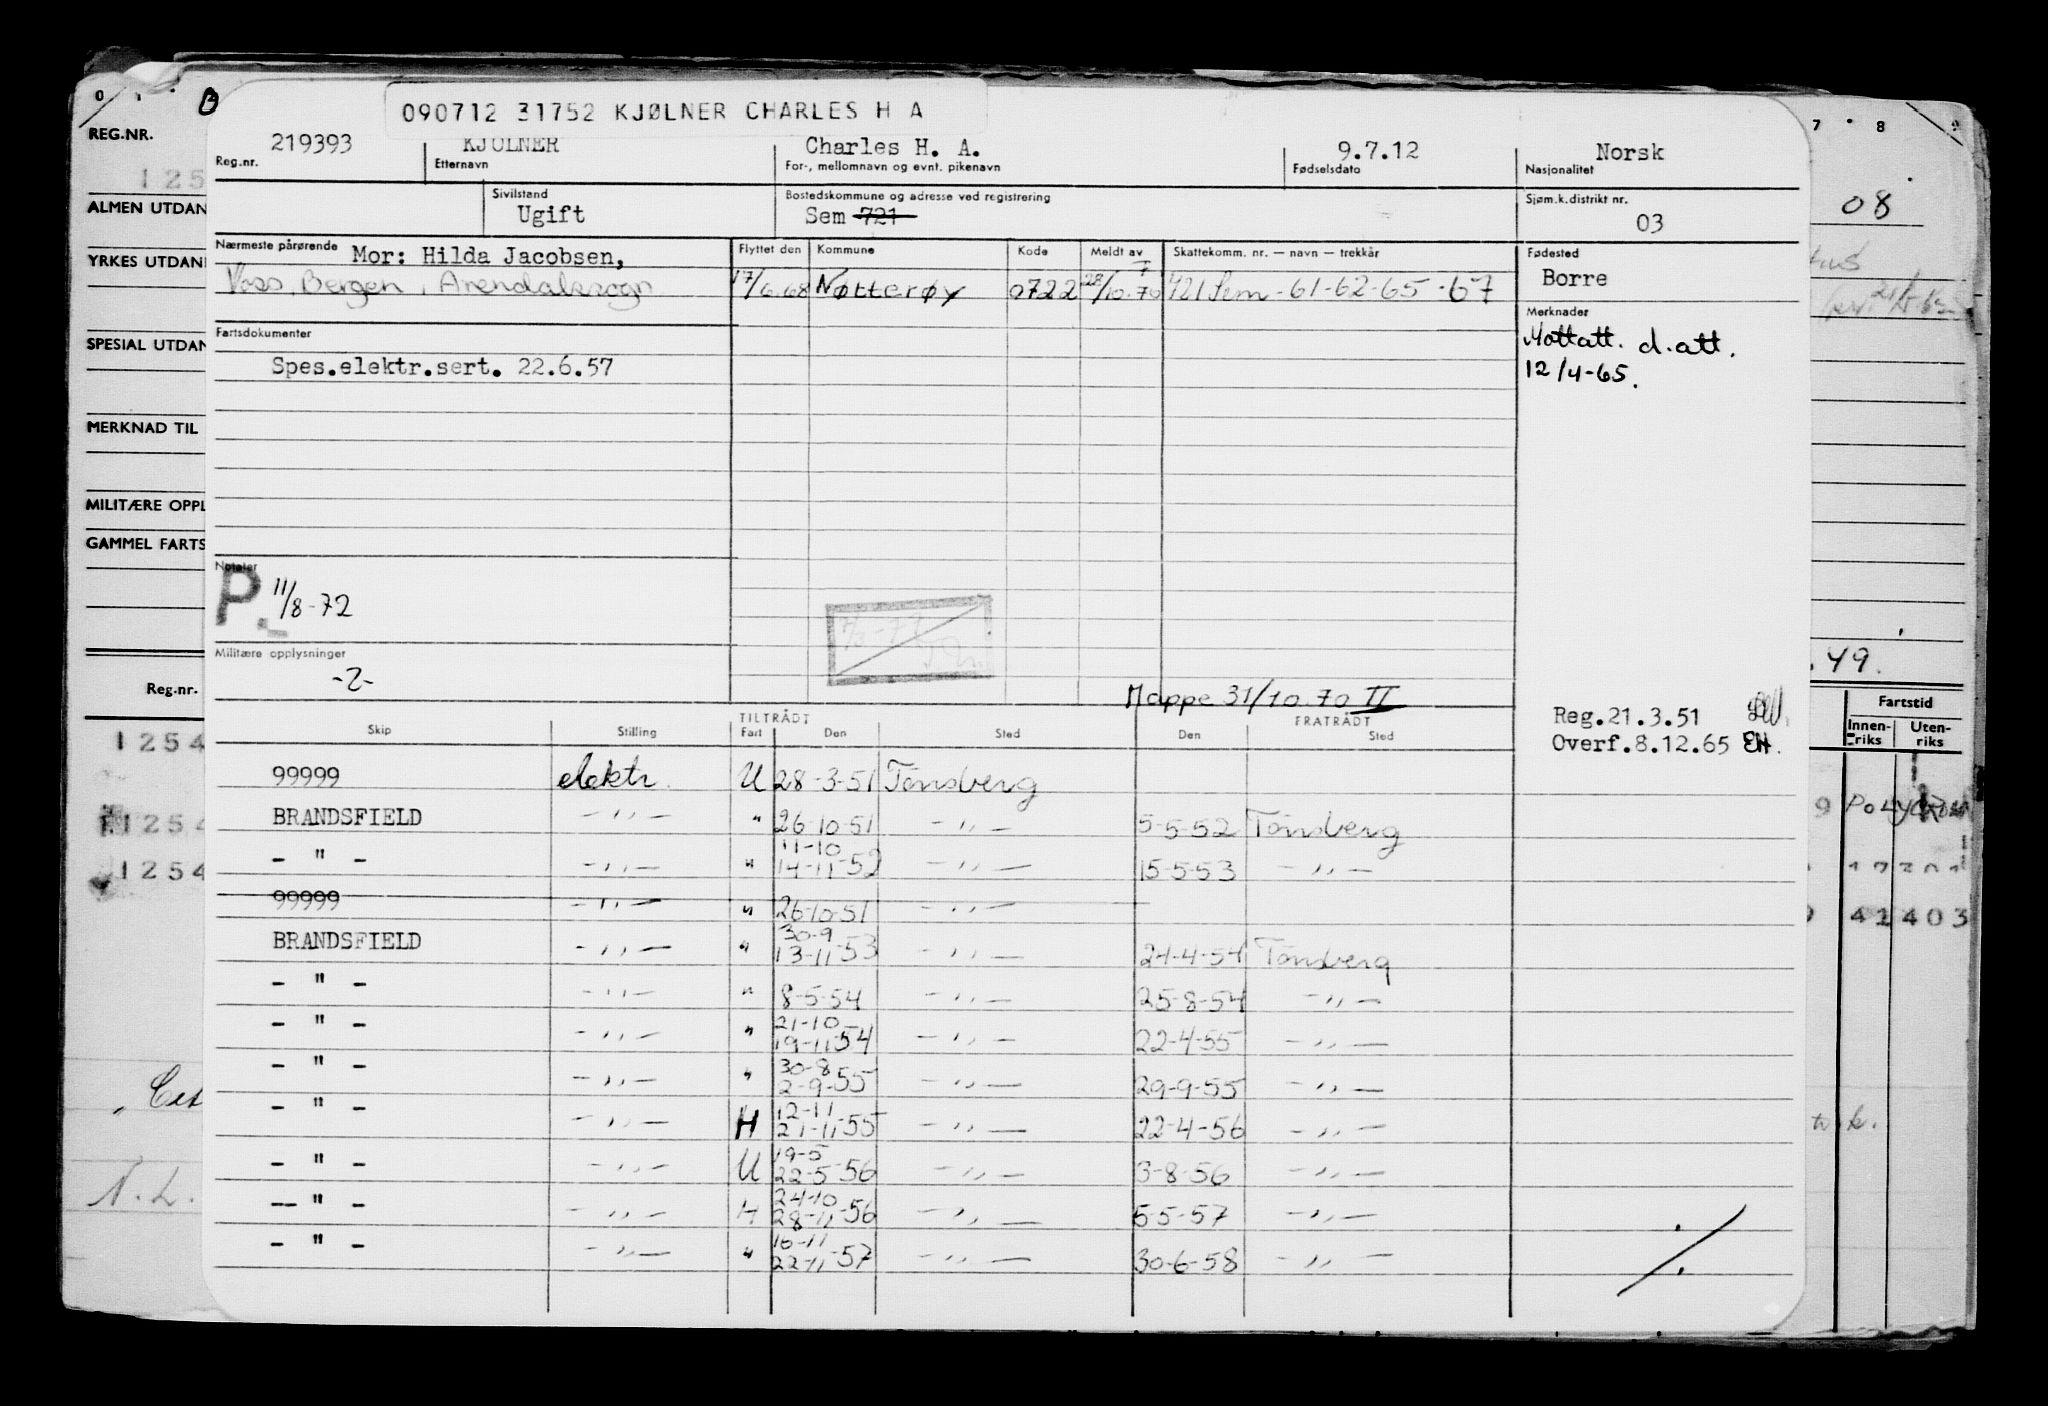 090712 31752 KJØLNER CHARLES H A
219393 KJØLNER Charles H. A. 9.7.12 Norsk
Reg.nr. Etternavn For-, mellomnavn og evnt. pikenavn Fødselsdato Nasjonalitet
Sivilstand Bostedskommune og adresse ved registrering Sjøm.k.distrikt nr.
Ugift Sem 721 03
Nærmeste pårørende Mor: Hilda Jacobsen, Flyttet den Kommune Kode Meldt av Skattekomm. nr. — navn — trekkår Fødested
Voss, Bergen, Arendalssogn 17/6.68 Nøtterøy 0722 28/10.70 721 Sem -61-62-65-67 Borre
Merknader
Fartsdokumenter Mottatt. d.att.
Spes.elektr.sert. 22.6.57 12/4-65.
Notater
P. 11/8-72
Militære opplysninger
-2-
Mappe 31/10.70 II
Reg.21.3.51
Overf.8.12.65 EH.
TILTRÅDT FRATRÅDT
Skip Stilling Fart Den Sted Den Sted
99999 elektr. U 28-3-51 Tønsberg
BRANDSFIELD -,,- " 26-10-51 -,,- 5-5-52 Tønsberg
- " - -,,- " 11-10 14-11-52 -,,- 15-5-53 -,,-
99999 -,,- " 26-10-51 -,,-
BRANDSFIELD -,,- " 30-9 13-11-53 -,,- 24-4-54 Tønsberg
- " - -,,- " 8-5-54 -,,- 25-8-54 -,,-
- " - -,,- " 21-10 19-11-54 -,,- 22-4-55 -,,-
- " - -,,- " 30-8 2-9-55 -,,- 29-9-55 -,,-
- " - -,,- H 12-11 21-11-55 -,,- 22-4-56 -,,-
- " - -,,- U 19-5 22-5-56 -,,- 3-8-56 -,,-
- " - -,,- H 24-10 28-11-56 -,,- 5-5-57 -,,-
- " - -,,- " 16-11 22-11-57 -,,- 30-6-58 -,,-
REG.NR.
125
ALMEN UTDAN
YRKES UTDAN
SPESIAL UTDAN
MERKNAD TIL
MILITÆRE OPPL
GAMMEL FARTS
Reg.nr.
1254
1254
1254
N. L.
7 8 9
08
49.
Fartstid
Innen-riks Uten-riks
41403